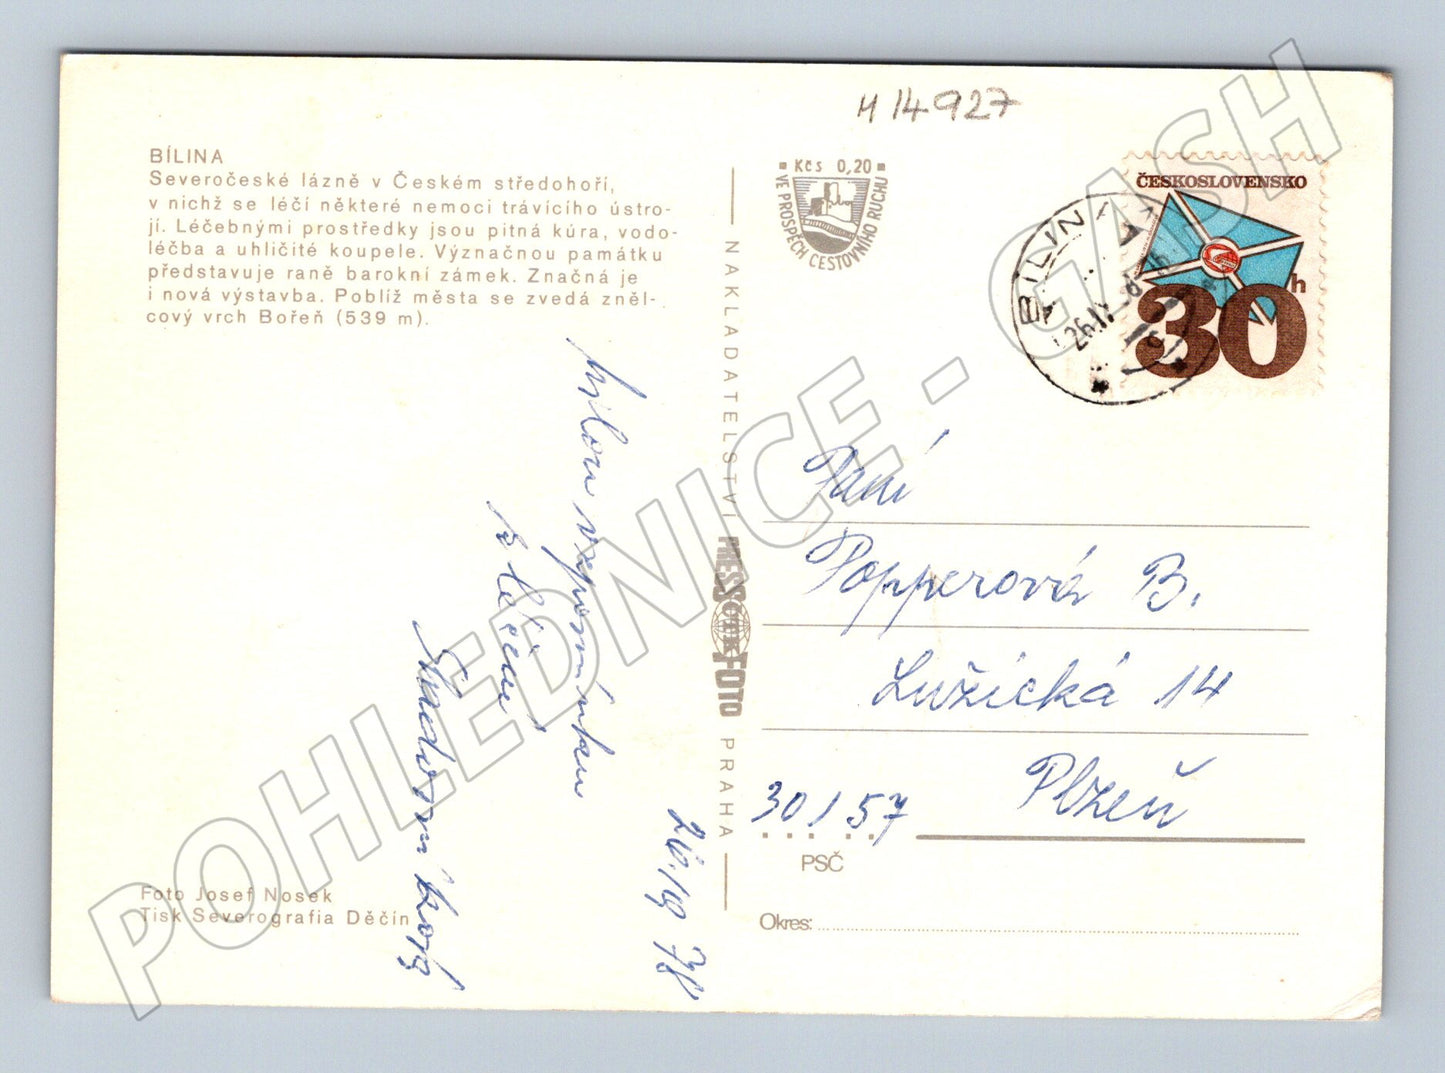 H 14927
BÍLINA
Severočeské lázně v Českém středohoří,
v nichž se léčí některé nemoci trávicího ústro-
jí. Léčebnými prostředky jsou pitná kúra, vodo-
léčba a uhličité koupele. Význačnou památku
představuje raně barokní zámek. Značná je
i nová výstavba. Poblíž města se zvedá zněl-
cový vrch Bořeň (539 m).
Milou vzpomínku
z léčení
26.IV 78
Foto Josef Nosek
Tisk Severografia Děčín
NAKLADATELSTVÍ PRESSFOTO PRAHA
ČTK
Kčs 0,20
VE PROSPĚCH CESTOVNÍHO RUCHU
ČESKOSLOVENSKO
30h
BÍLINA 1
26.IV
Paní
Popperová B.
Lužická 14
Plzeň
301 57
PSČ
Okres:
POHLEDNICE - CASH